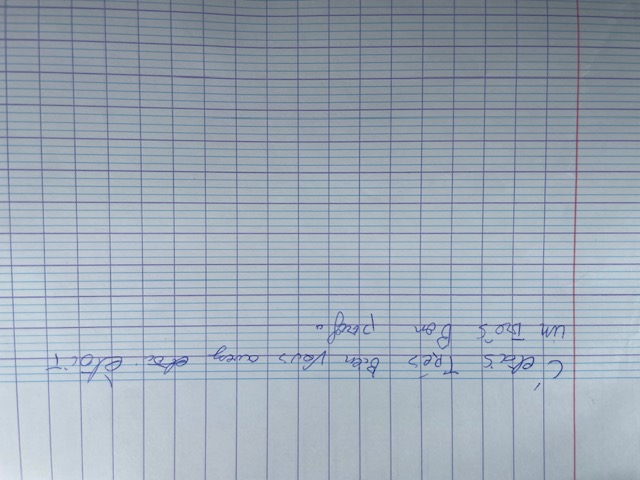 C'etais Très Bien Vous avez étoit
un Très Bon prof.